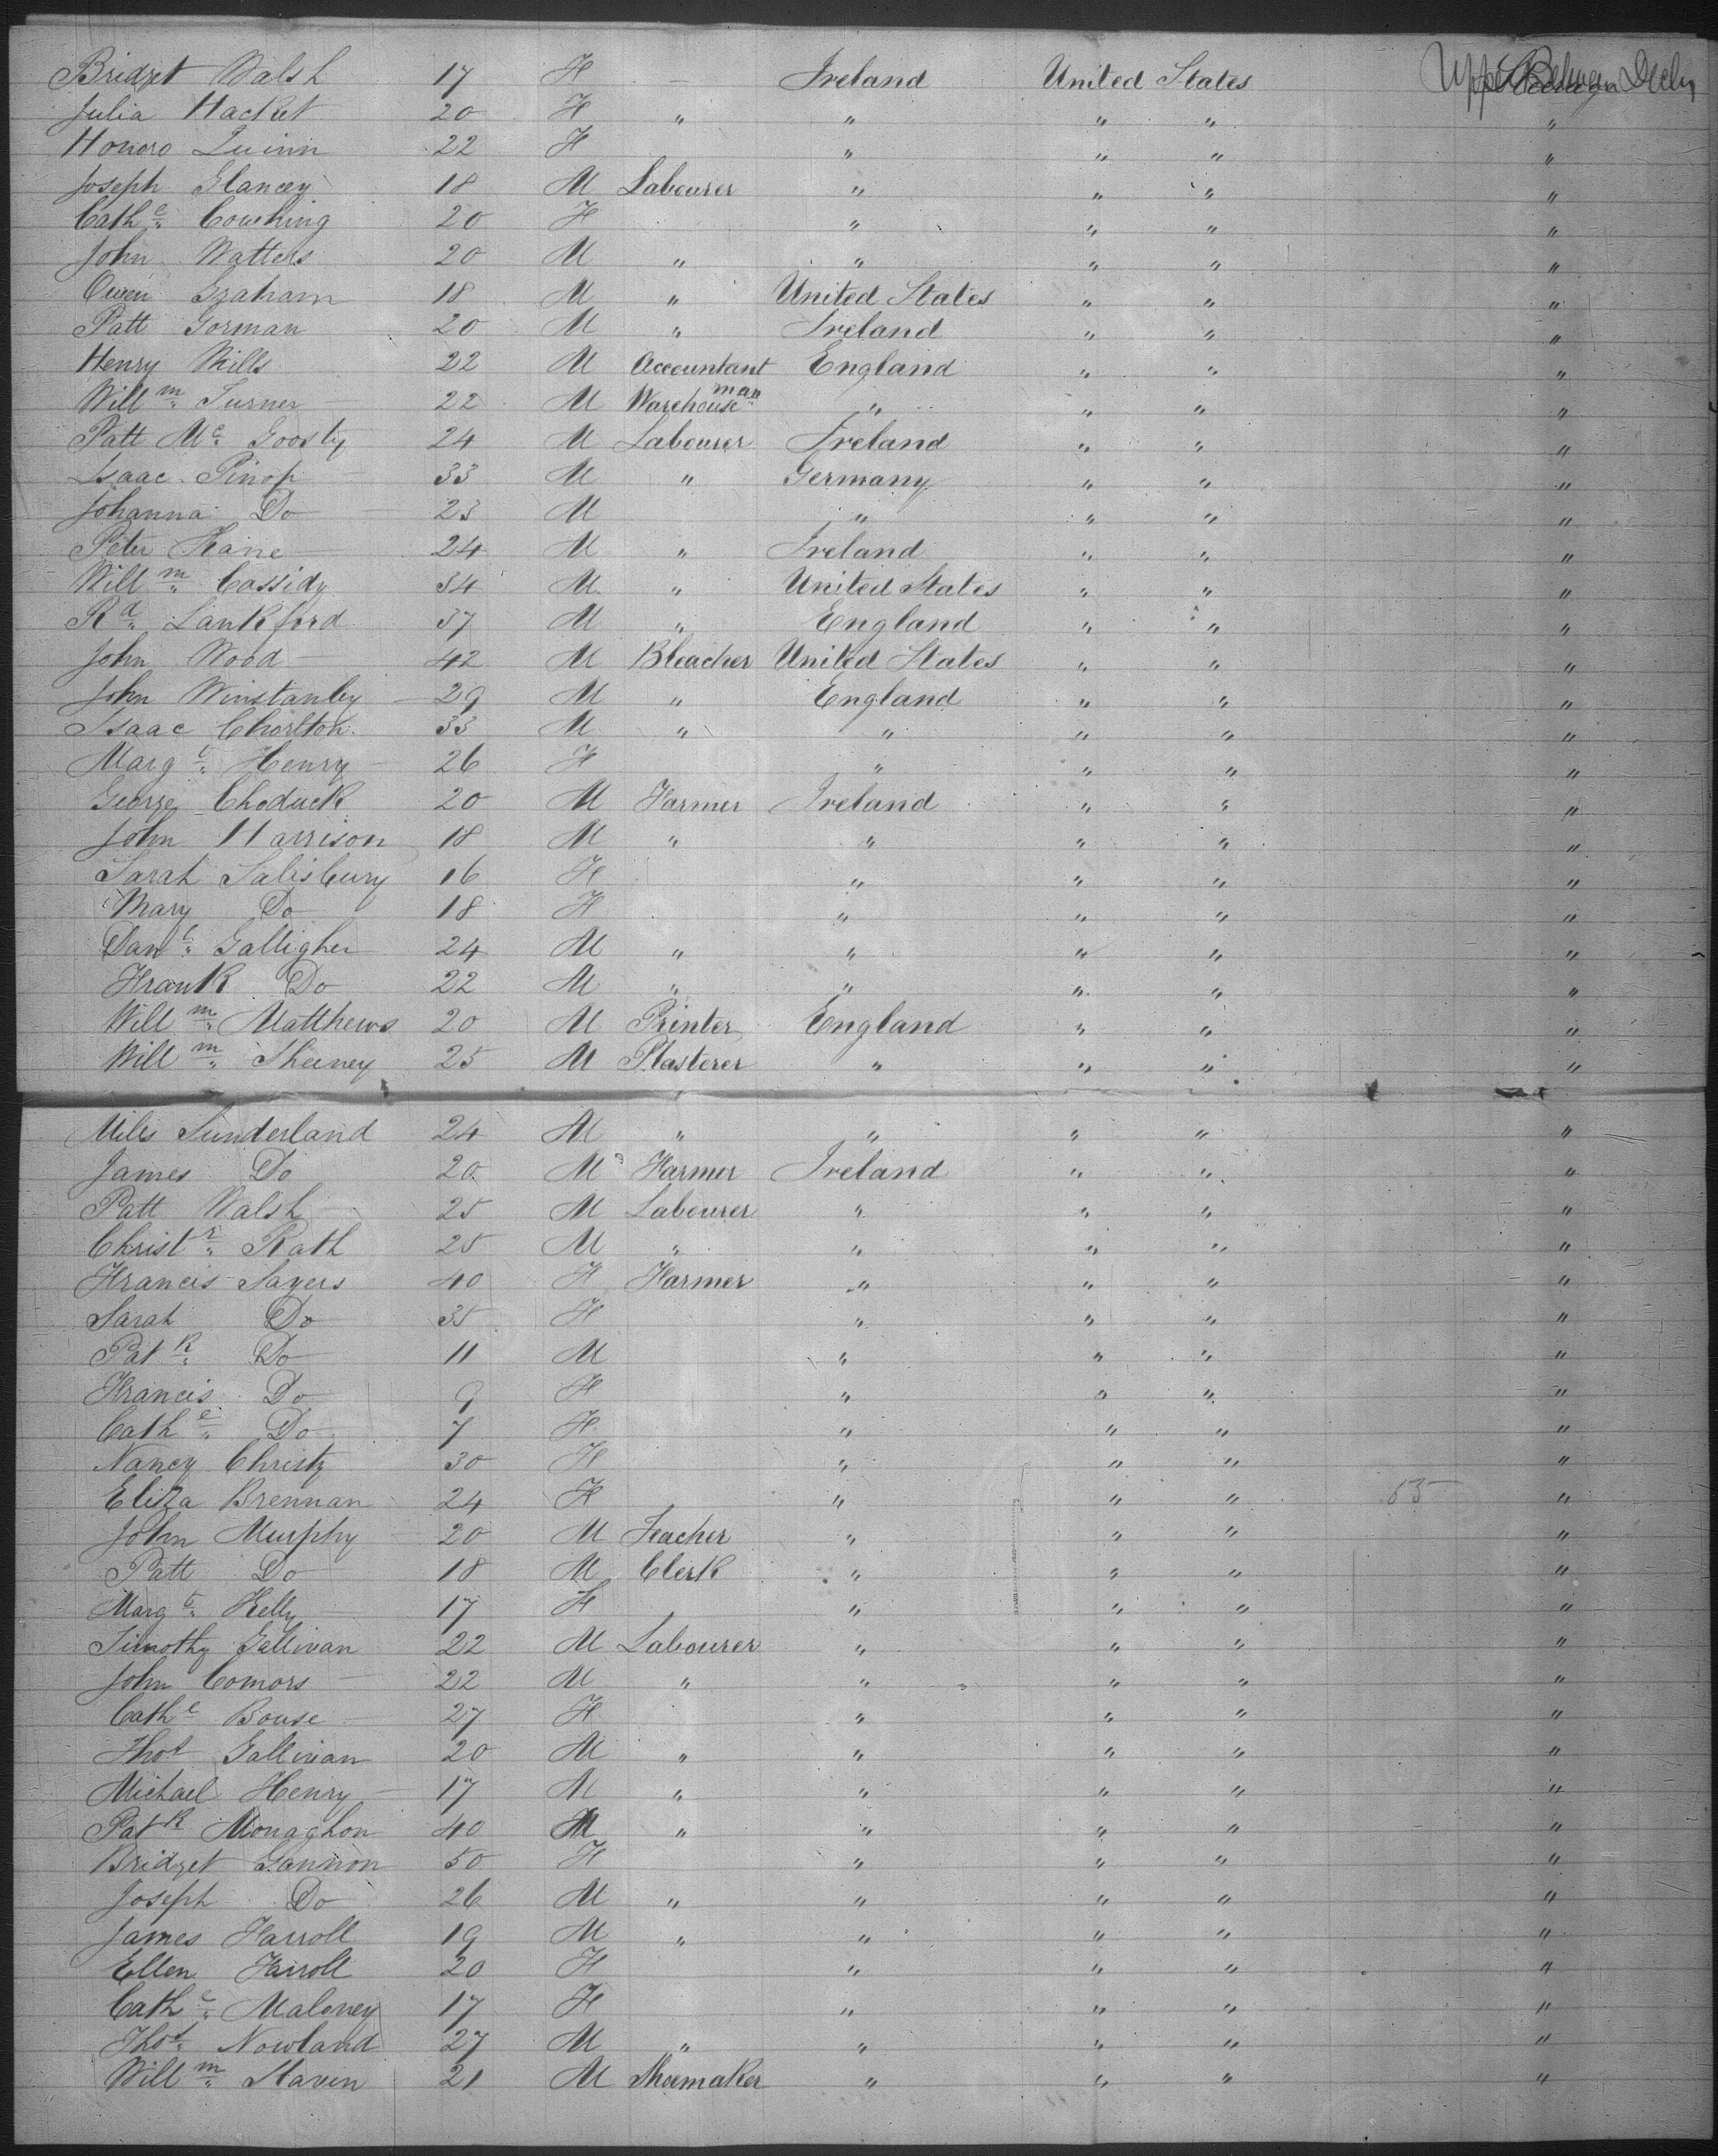 Bridget Walsh 17 F - Ireland United States Upper Between Decks
Julia Hacket 20 F " " " " "
Honoro Quinn 22 F " " " "
Joseph Glancey 18 M Labourer " " " "
Cathe Cowhing 20 F " " " "
John Watters 20 M " " " " "
Owen Graham 18 M " United States " " "
Patt Gorman 20 M " Ireland " " "
Henry Mills 22 M Accountant England " " "
Willm Turner 22 M Warehouseman " " " "
Patt Mc Goosty 24 M Labourer Ireland " " "
Isaac Pinop 33 M " Germany " " "
Johanna Do 23 M " " " "
Peter Kane 24 M " Ireland " " "
Willm Cassidy 34 M " United States " " "
Rd Lankford 37 M " England " " "
John Wood 42 M Bleacher United States " " "
John Winstanley 29 M " England " " "
Isaac Chorlton 33 M " " " " "
Margt Henry 26 F " " " "
George Choduck 20 M Farmer Ireland " " "
John Harrison 18 M " " " " "
Sarah Salisbury 16 F " " " "
Mary Do 18 F " " " "
Danl Galligher 24 M " " " " "
Frank Do 22 M " " " " "
Willm Matthews 20 M Printer England " " "
Willm Sheeney 25 M Plasterer " " " "
Miles Sunderland 24 M " " " " "
James Do 20 M Farmer Ireland " " "
Patt Walsh 25 M Labourer " " " "
Christr Rath 25 M " " " " "
Francis Sayers 40 F Farmer " " " "
Sarah Do 35 F " " " "
Patk Do 11 M " " " "
Francis Do 9 F " " " "
Cathe Do 7 F " " " "
Nancy Christy 30 F " " " "
Eliza Brennan 24 F " " " 55 "
John Murphy 20 M Teacher " " " "
Patt Do 18 M Clerk " " " "
Margt Kelly 17 F " " " "
Timothy Gallivan 22 M Labourer " " " "
John Comors 22 M " " " " "
Cathe Bouse 27 F " " " "
Thos Gallivan 20 M " " " " "
Michael Henry 17 M " " " " "
Patk Monaghon 40 M " " " " "
Bridget Gannon 50 F " " " "
Joseph Do 26 M " " " " "
James Farroll 19 M " " " " "
Ellen Farroll 20 F " " " "
Cathe Maloney 17 F " " " "
Thos Nowland 27 M " " " " "
Willm Slaven 21 M Shoemaker " " " "